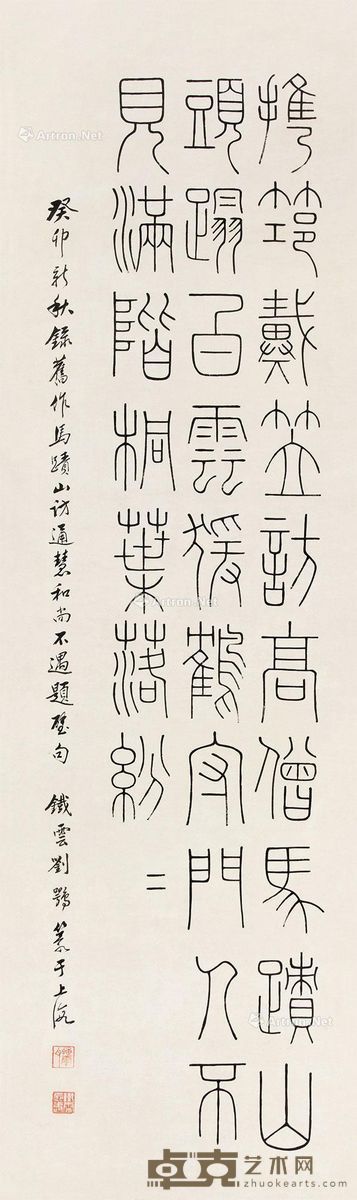 攜筇戴笠訪高僧馬蹟山
頭蹋白雲猨鶴守門人不
見滿階桐葉落紛二
癸卯新秋錄舊作馬蹟山訪通慧和尚不遇題壁句 鐵雲劉鶚篆于上海
Artron.Net
Artron.Net
Artron.Net
Artron.Net
卓克艺术网
zhuokearts.com